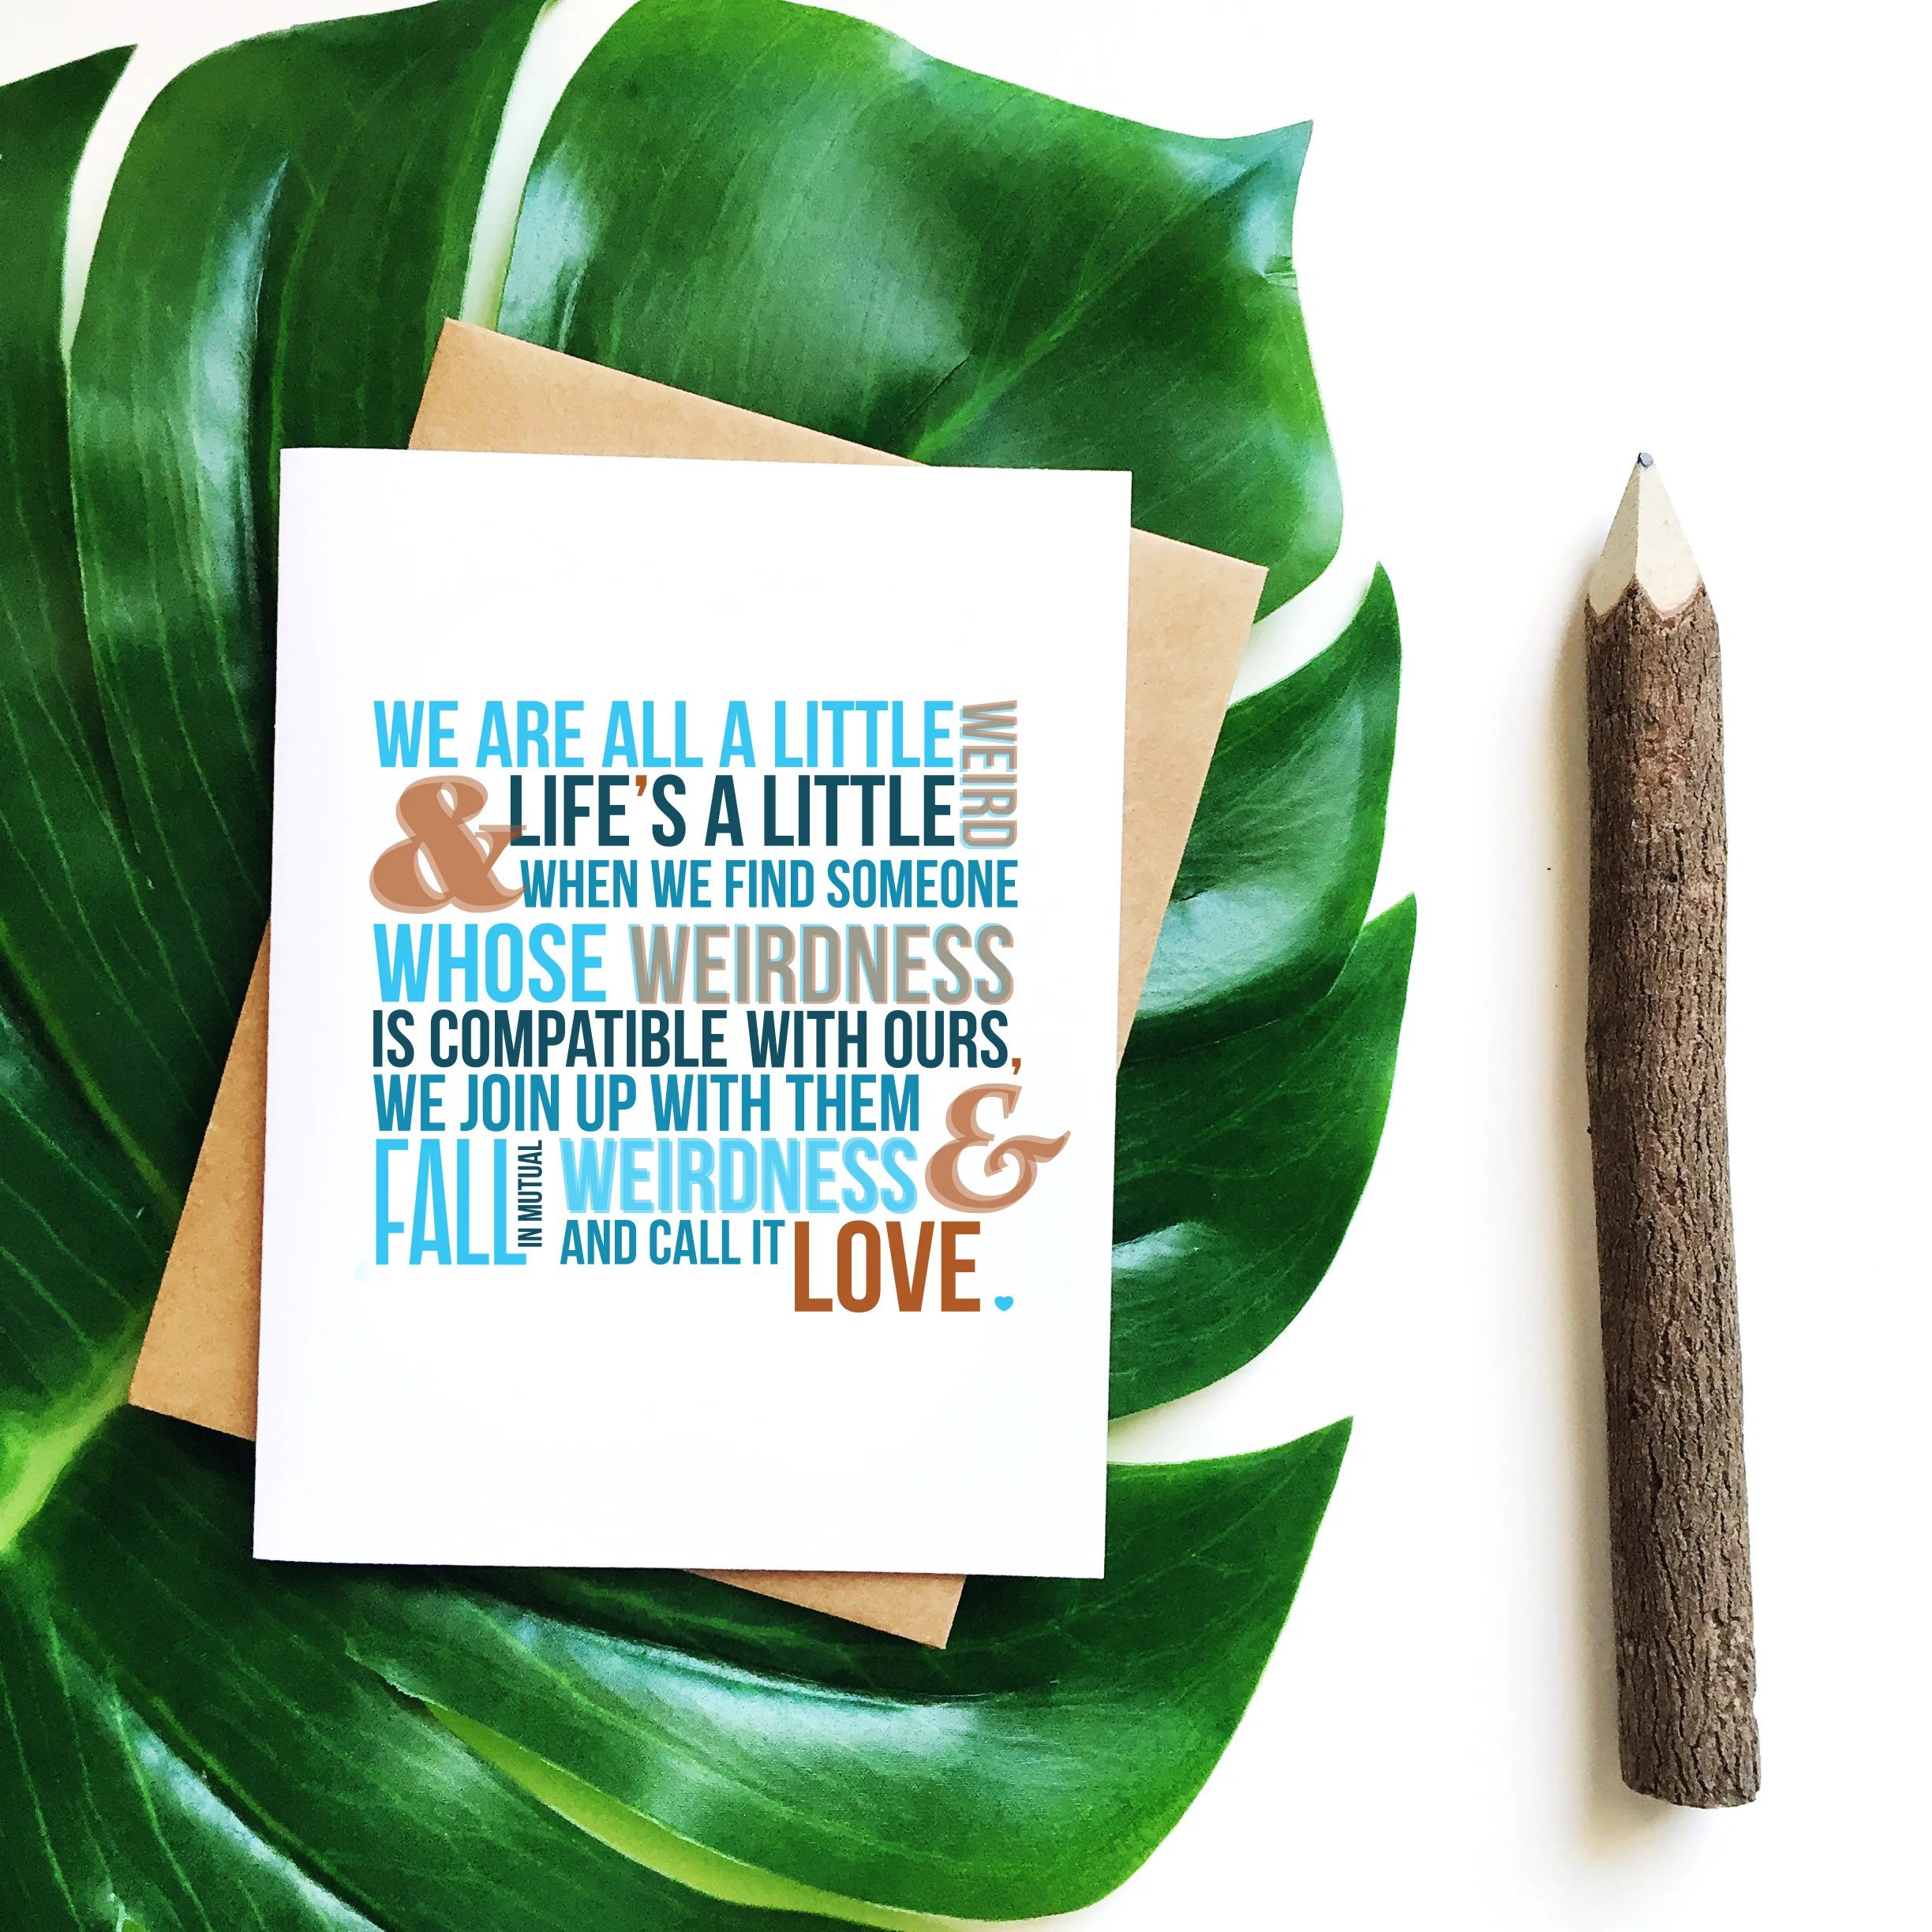 WE ARE ALL A LITTLE WEIRD
& LIFE'S A LITTLE
WHEN WE FIND SOMEONE
WHOSE WEIRDNESS
IS COMPATIBLE WITH OURS,
WE JOIN UP WITH THEM &
FALL IN MUTUAL WEIRDNESS
AND CALL IT LOVE.